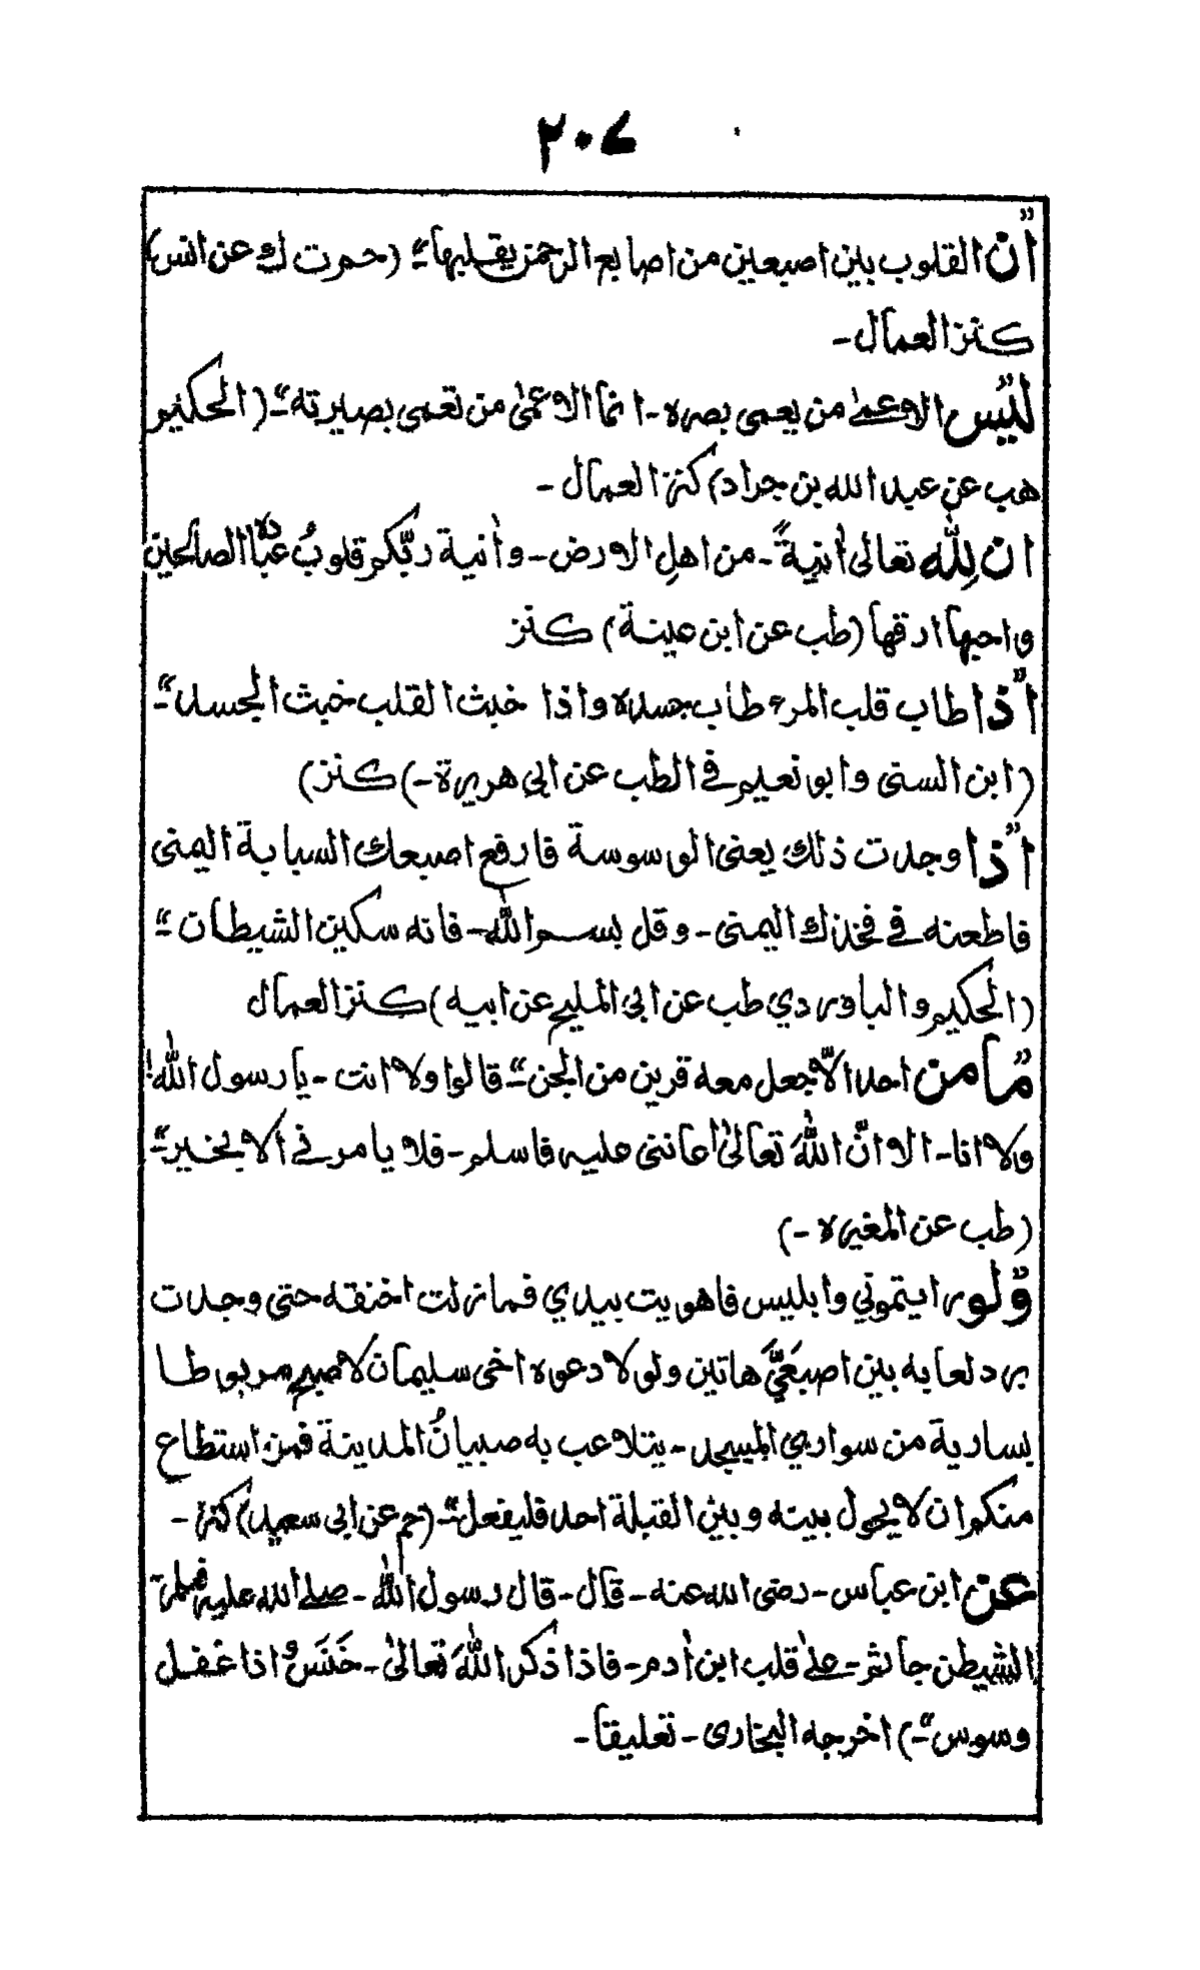 ۲۰۷
"ان القلوب بين اصبعين من اصابع الرحمن يقلبها"۔ (حم ت ك عن انس)
كنز العمال۔
"ليس الاعمىٰ من يعمى بصره۔ انما الاعمىٰ من تعمى بصيرته"۔ (الحكيم
هب عن عبد الله بن جراد) كنز العمال۔
ان لِلّٰه تعالىٰ اٰنيةً۔ من اهلِ الارض۔ واٰنية ربّكم قلوبُ عباده الصالحين
واحبها ارقها (طب عن ابن عينة) كنز
"اذا طاب قلب المرء طاب جسده واذا خبث القلب خبث الجسد"۔
(ابن السنى وابو نعيم في الطب عن ابي هريرة۔) كنز)
"اذا وجدت ذلك يعنى الوسوسة فارفع اصبعك السبابة اليمنى
فاطعنه في فخذك اليمنى۔ وقل بسم اللّٰه۔ فانه سكين الشيطان"۔
(الحكيم والباوردي طب عن ابي المليح عن ابيه) كنز العمال
"ما من احد الاّ جعل معه قرين من الجن"۔ قالوا ولا انت۔ يا رسول اللّٰه!
ولا انا۔ الا انّ اللّٰهَ تعالىٰ اعانني عليه فاسلم۔ فلا يامرني الا بخير"۔
(طب عن المغيره۔)
"ولو رايتموني وابليس فاهويت بيدي فما زلت اخنقه حتى وجدت
برد لعابه بين اصبعَيَّ هاتين ولولا دعوه اخى سليمان لاصبح مربوطا
بسارية من سواري المسجد۔ يتلاعب به صبيانُ المدينة فمن استطاع
منكم ان لا يحول بينه وبين القبلة احد فليفعل"۔ (حم عن ابي سعيد) كنز۔
عن ابن عباس۔ رضى الله عنه۔ قال۔ قال رسول اللّٰه۔ صلے الله عليه وسلم۔"
الشيطٰن جاثم۔ علىٰ قلب ابن اٰدم۔ فاذا ذكر اللّٰهَ تعالىٰ۔ خَنَسَ و اذا غفل
وسوس"۔) اخرجه البخارى۔ تعليقا۔